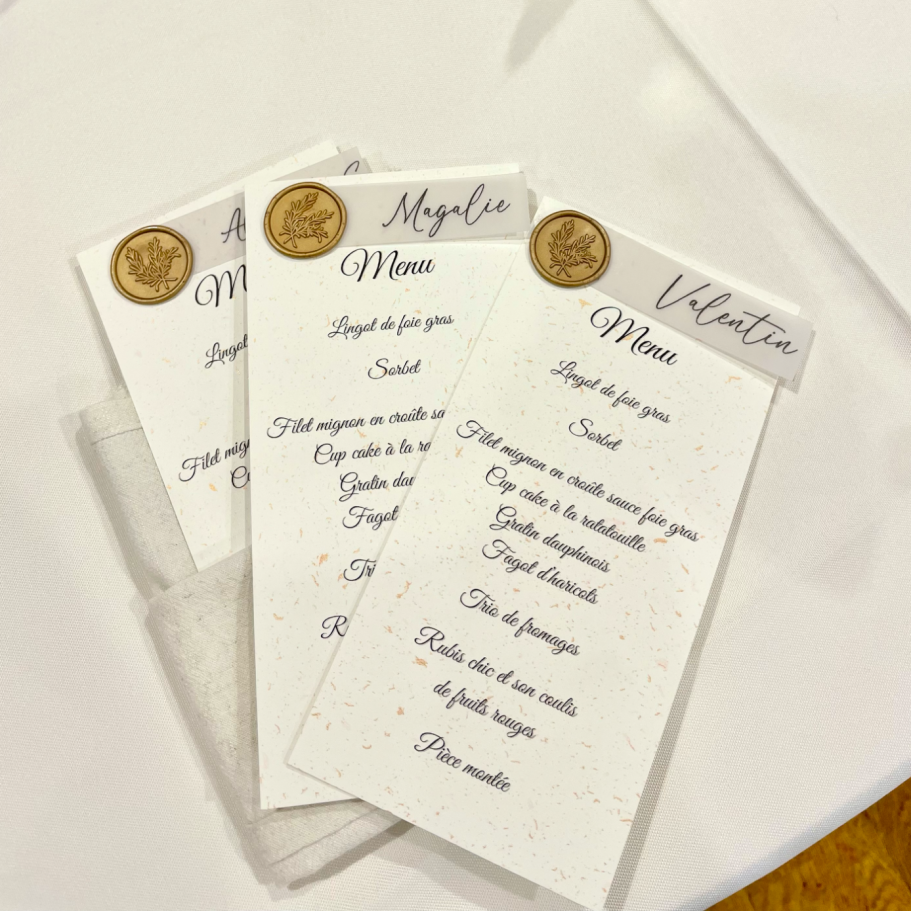 M
Lingot
Filet
Magalie
Menu
Lingot de foie gras
Sorbet
Filet mignon en croûte
Cup cake à la
Gratin
Fagot
Valentin
Menu
Lingot de foie gras
Sorbet
Filet mignon en croûte sauce foie gras
Cup cake à la ratatouille
Gratin dauphinois
Fagot d'haricots
Trio de fromages
Rubis chic et son coulis
de fruits rouges
Pièce montée